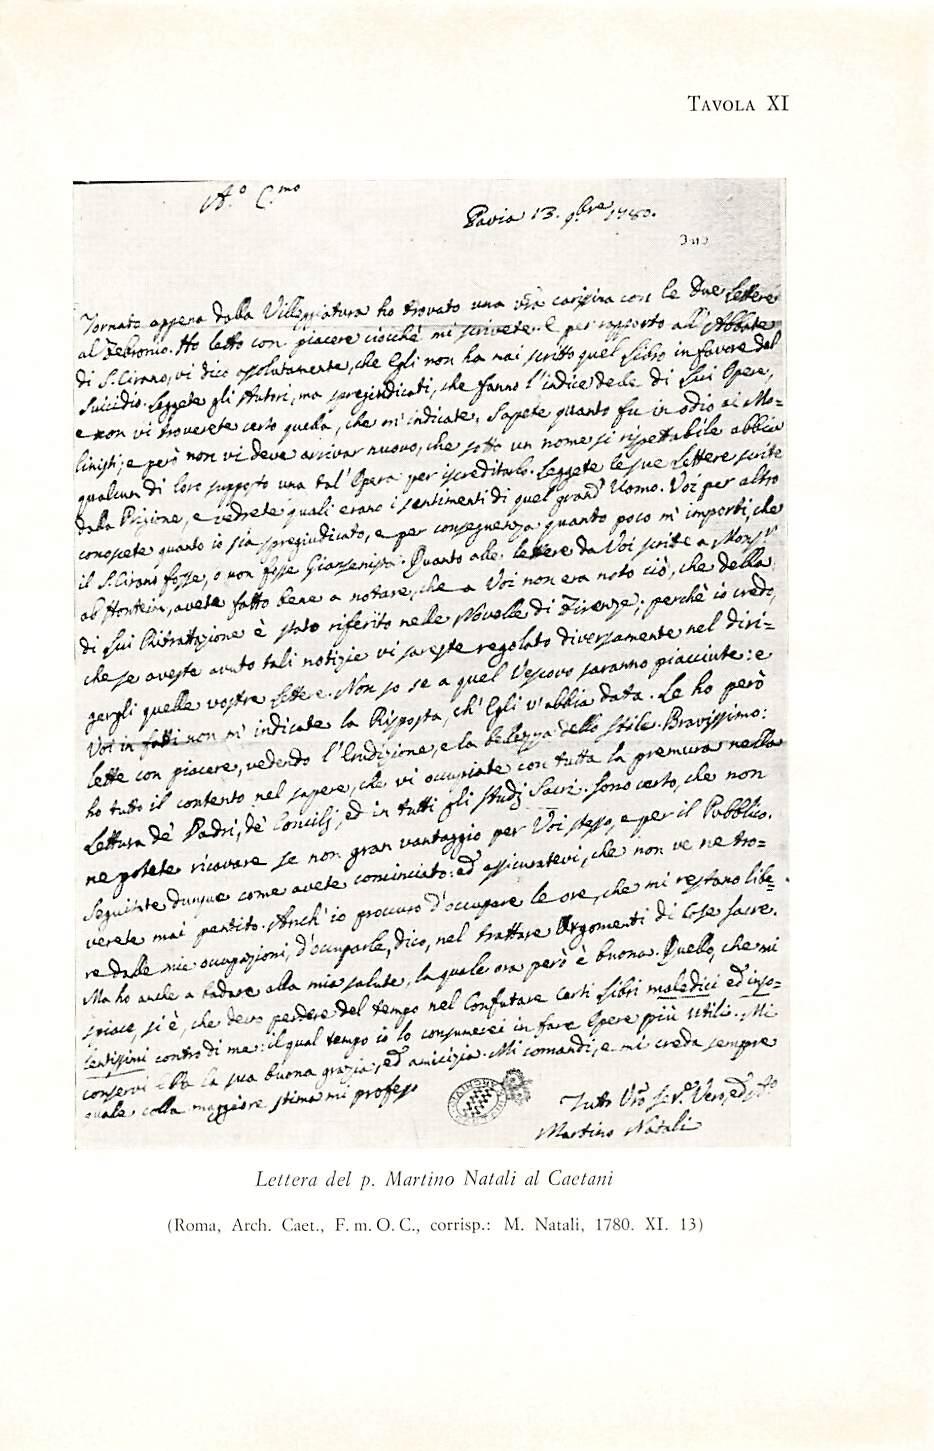 TAVOLA XI
A.º C.mo
Pavia 13. 9bre 1780.
Tornato appena dalla Villeggiatura ho trovato una vra carissima con le due lettere
al Febronio. Ho letto con piacere ciocchè mi scrivete. E per rapporto all'Abbate
di S. Cirano, vi dico assolutamente, che Egli non ha mai scritto quel libro in favore del
suicidio. Leggete gli Autori, ma spregiudicati, che fanno l'indice delle di Lui Opere,
e non vi troverete certo quella, che m'indicate. Sapete quanto fu in odio ai Mo=
linisti; e però non vi deve arrivar nuovo, che sotto un nome sì rispettabile abbia
qualcun di loro supposto una tal' Opera per iscreditarlo. Leggete le sue Lettere scritte
dalla Prigione, e vedrete quali erano i sentimenti di quel grand' Uomo. Voi per altro
conoscete quanto io sia spregiudicato, e per conseguenza quanto poco m'importi, che
il S. Cirano fosse, o non fosse Giansenista. Quanto alle lettere da Voi scritte a Monsr
ab Hontein, avete fatto bene a notare, che a Voi non era noto ciò, che della
di Lui Ritrattazione è stato riferito nelle Novelle di Firenze; perchè io credo,
che se aveste avuto tali notizie vi sareste regolato diversamente nel diri=
gergli quelle vostre lettere. Non so se a quel Vescovo saranno piacciute: e
Voi in fatti non m'indicate la Risposta, ch'Egli v'abbia data. Le ho però
lette con piacere, vedendo l'Erudizione, e la bellezza dello stile. Bravissimo:
ho tutto il contento nel sapere, che vi occupiate con tutta la premura nella
Lettura de' Padri, de' Concilj, ed in tutti gli studj Sacri. Sono certo, che non
ne potete ricavare se non gran vantaggio per Voi stesso, e per il Pubblico.
Seguitate dunque come avete cominciato: ed assicuratevi, che non ve ne tro=
verete mai pentito. Anch'io proccuro d'occupare le ore, che mi restano libe=
re dalle mie occupazioni, d'occuparle, dico, nel trattare Argomenti di Cose sacre.
Ma ho anche a badare alla mia salute, la quale ora però è buona. Quello, che mi
spiace, si è, che devo perdere del tempo nel Confutare certi libri maledici ed inso=
lentissimi contro di me: il qual tempo io lo consumerei in fare Opere più utili. Mi
conservi la sua buona grazia, ed amicizia. Mi comandi, e mi creda sempre
quale colla maggiore stima mi professo
Tutto Vro Servr Vero, ed
Martino Natali
Lettera del p. Martino Natali al Caetani
(Roma, Arch. Caet., F. m. O. C., corrisp.: M. Natali, 1780. XI. 13)